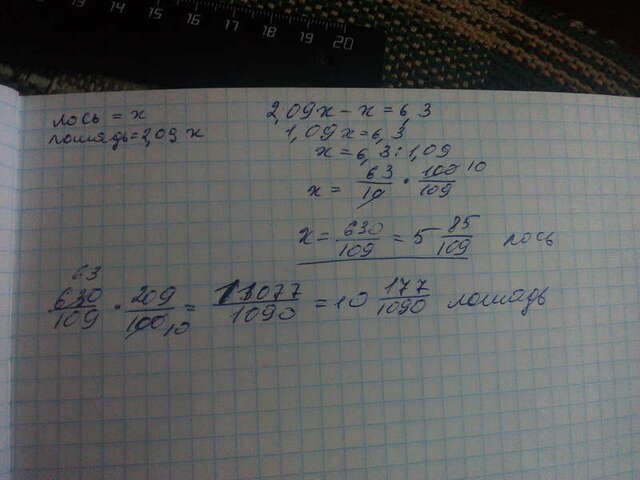 13 14 15 16 17 18 19 20
лось = x
лошадь=2,09 x
2,09x - x = 6,3
1,09x = 6,3
x = 6,3 : 1,09
x = 63/10 · 100/109 10
x = 630/109 = 5 85/109 лось
63
630/109 · 209/100 10 = 11077/1090 = 10 177/1090 лошадь